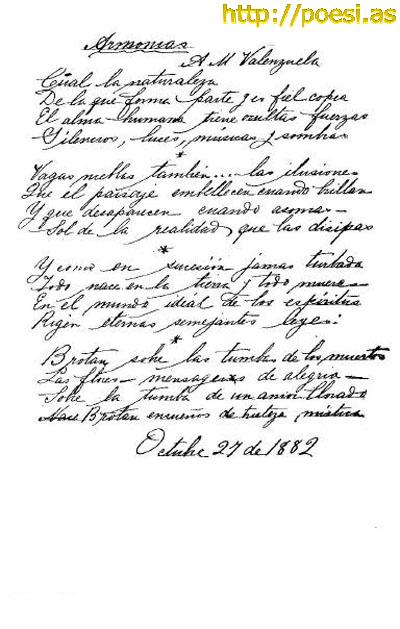 http://poesi.as
Armonias
A M Valenzuela
Cüal la naturaleza
De la que forma parte y es fiel copia
El alma humana tiene ocultas fuerzas
Silencios, luces, músicas y sombras
*
Vagas nieblas tambien.... las ilusiones
Que el paisaje embellecen cuando brillan
Y que desaparecen cuando asoma –
Sol de la realidad que las disipa
*
Y como en sucesión jamas turbada
Todo nace en la tierra y todo muere –
En el mundo ideal de los espíritus
Rigen eternas semejantes leyes:
*
Brotan sobre las tumbas de los muertos
Las flores – mensageras de alegria –
Sobre la tumba de un amor llorado
Nace Brotan ensueños de tristeza mística
Octubre 27 de 1882